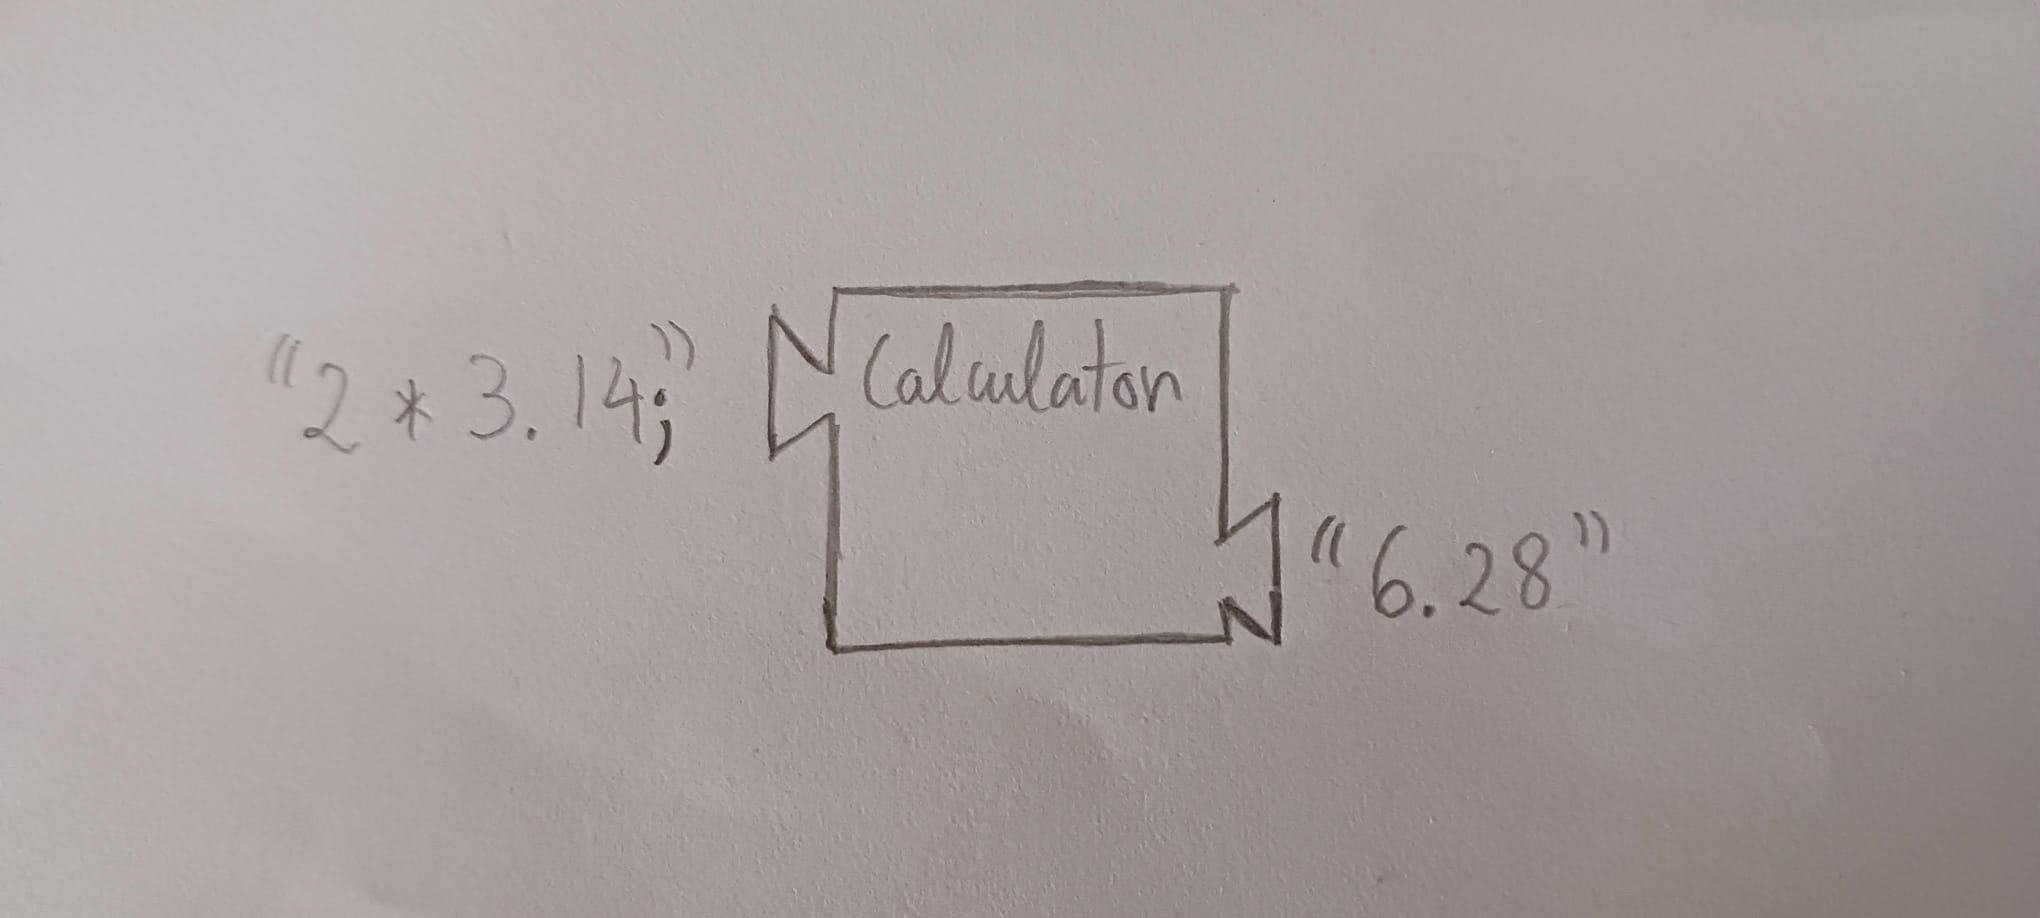 "2 * 3.14;"
Calculator
"6.28"